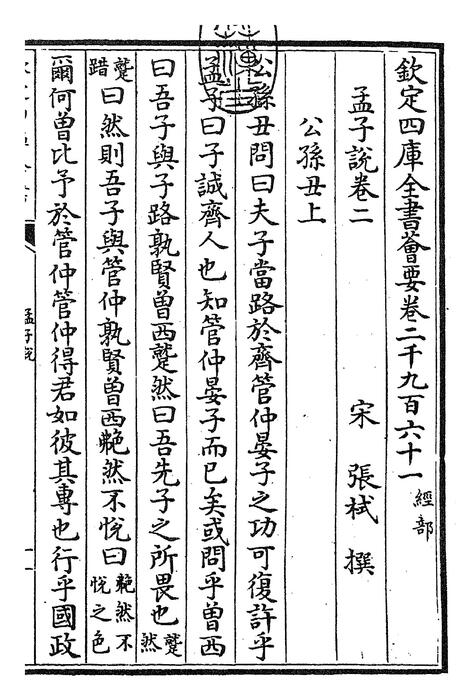 欽定四庫全書薈要卷二千九百六十一 經部
孟子說卷二
宋 張栻 撰
公孫丑上
公孫丑問曰夫子當路於齊管仲晏子之功可復許乎
孟子曰子誠齊人也知管仲晏子而已矣或問乎曾西
曰吾子與子路孰賢曾西蹵然曰吾先子之所畏也蹵然
蹵踖曰然則吾子與管仲孰賢曾西艴然不悅曰艴然不悅之色
爾何曾比予於管仲管仲得君如彼其專也行乎國政
孟子說